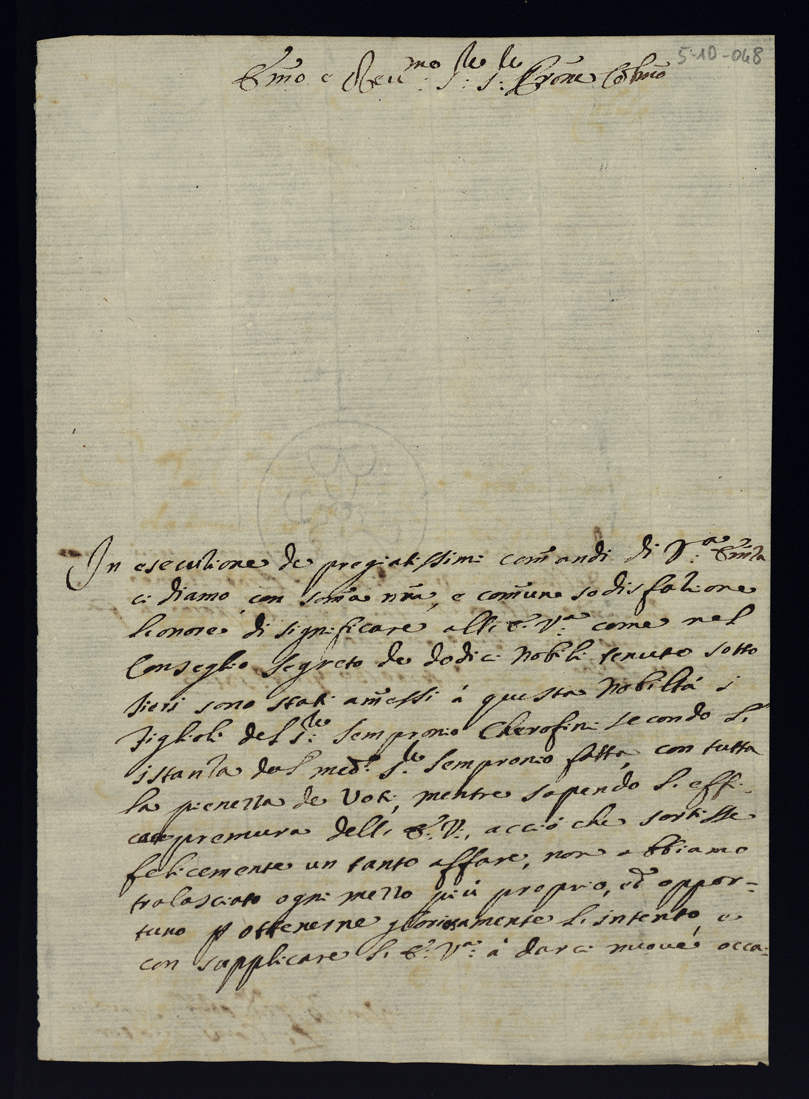 5-10-048
Em̃o e Reu:mo S:re S:re Prõne Colm̃o
In esecutione de pregiatissimi com̃andi di V:a Em̃za
ci diamo, con som̃a nr̃a, e com̃une sodisfatione
l'onore di significare all'E:V:a come nel
Conseglio segreto de dodici Nobili tenuto sotto
hieri sono stati am̃essi à questa Nobiltà i
figlioli del S:re Sempronio Cherofini secondo l'
istanza dal med:o S:re Sempronio fatta, con tutta
la pienezza de Voti, mentre sapendo l'effi-
cace premura dell'E:V:, acciò che sortisse
felicemente un tanto affare, non abbiamo
tralasciato ogni mezzo più proprio, ed oppor=
tuno p ottenerne gloriosamente l'intento, e
con supplicare l'E:V:a à darci nuove occa-